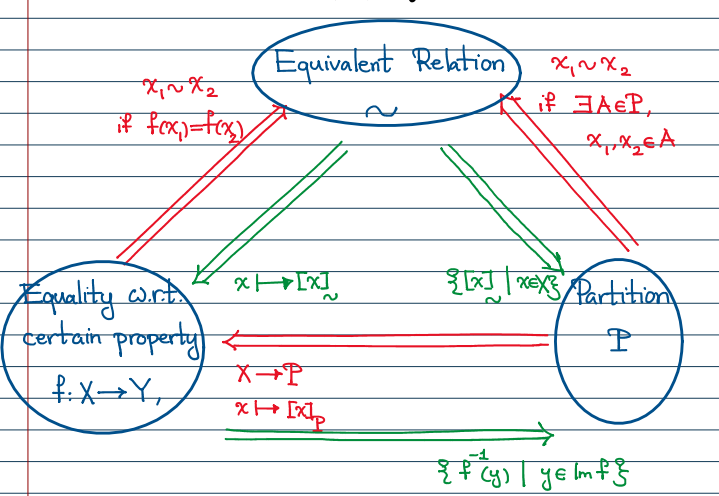 Equivalent Relation
~
x₁ ~ x₂
if f(x₁)=f(x₂)
x₁ ~ x₂
if ∃A∈ℙ,
x₁, x₂ ∈ A
x ↦ [x]~
{[x]~ | x∈X}
Equality w.r.t.
certain property
f: X → Y,
Partition
ℙ
X → ℙ
x ↦ [x]ℙ
{f⁻¹(y) | y ∈ Im f}